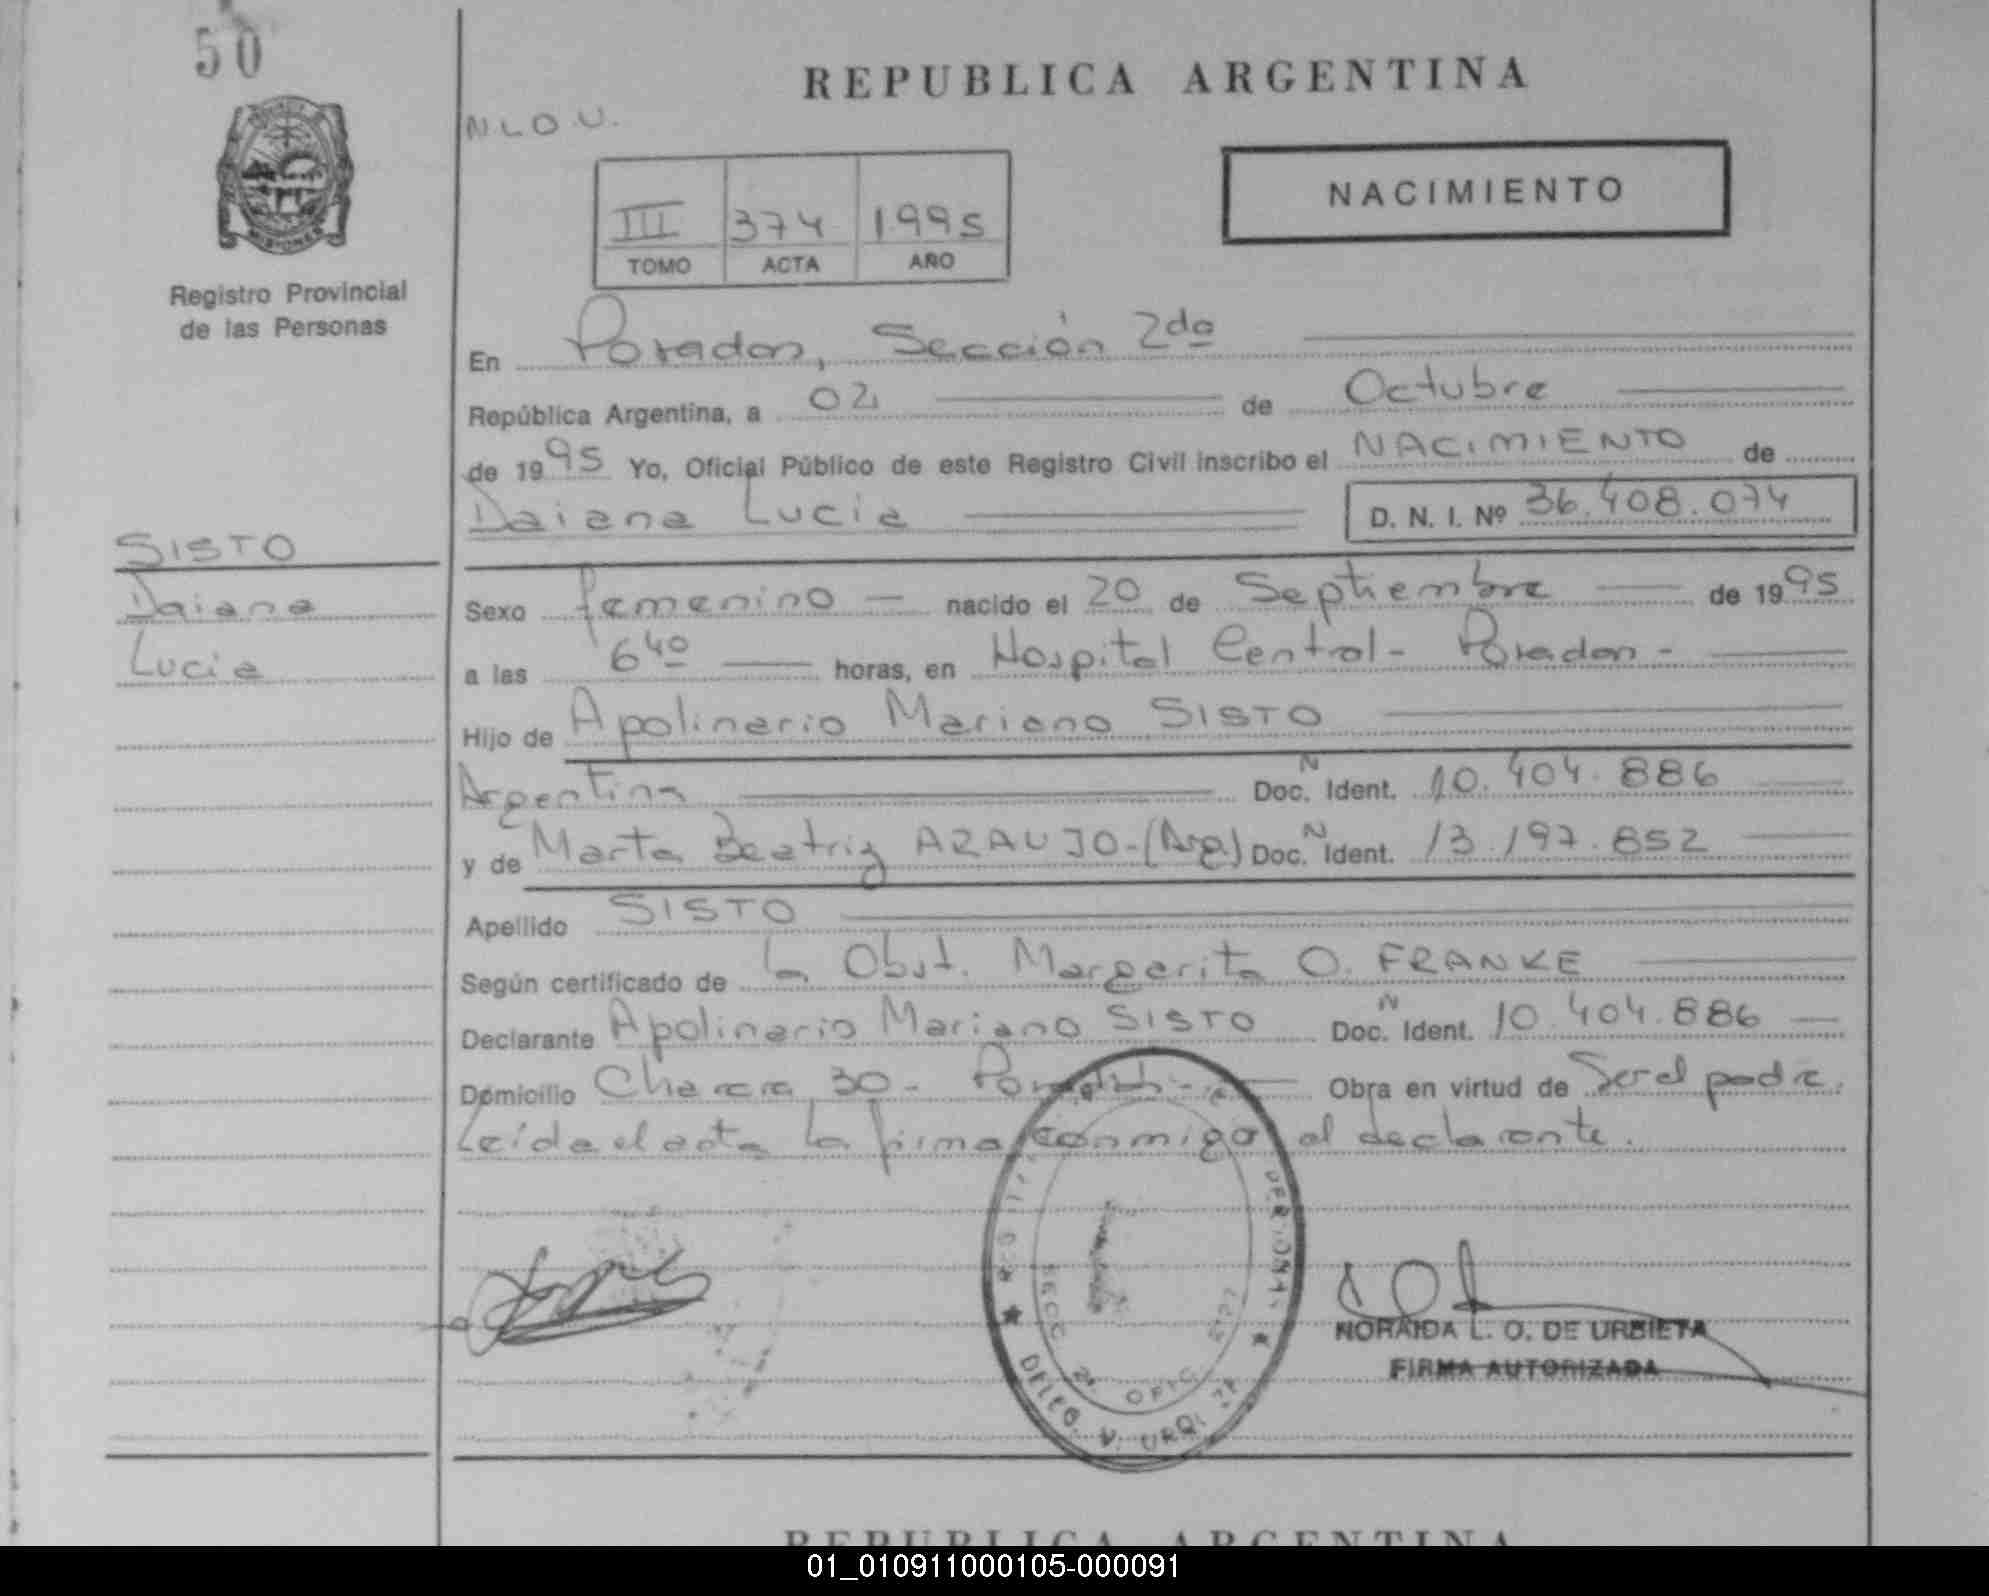 50
REPUBLICA ARGENTINA
N.L.O.U.
III 374 1995
TOMO ACTA AÑO
NACIMIENTO
MISIONES
Registro Provincial
de las Personas
En Posadas, Sección 2da
República Argentina, a 02 de Octubre
de 1995 Yo, Oficial Público de este Registro Civil inscribo el NACIMIENTO de
Daiana Lucia D. N. I. Nº 36.408.074
SISTO
Daiana
Lucia
Sexo femenino — nacido el 20 de Septiembre — de 1995
a las 6 40 — horas, en Hospital Central - Posadas -
Hijo de Apolinario Mariano SISTO
Argentina Doc. N Ident. 10.404.886
y de Marta Beatriz ARAUJO - (Arg.) Doc. N Ident. 13.197.852
Apellido SISTO
Según certificado de la Obst. Margarita O. FRANKE
Declarante Apolinario Mariano SISTO Doc. N Ident. 10.404.886 —
Domicilio Chacra 30 - Obra en virtud de Ser el padre.
Leída el acta la firma conmigo el declarante.
SECC. 2ª OFIC.
DELEG. V. URQ.
NORAIDA L. O. DE URBIETA
FIRMA AUTORIZADA
REPUBLICA ARGENTINA
01_010911000105-000091